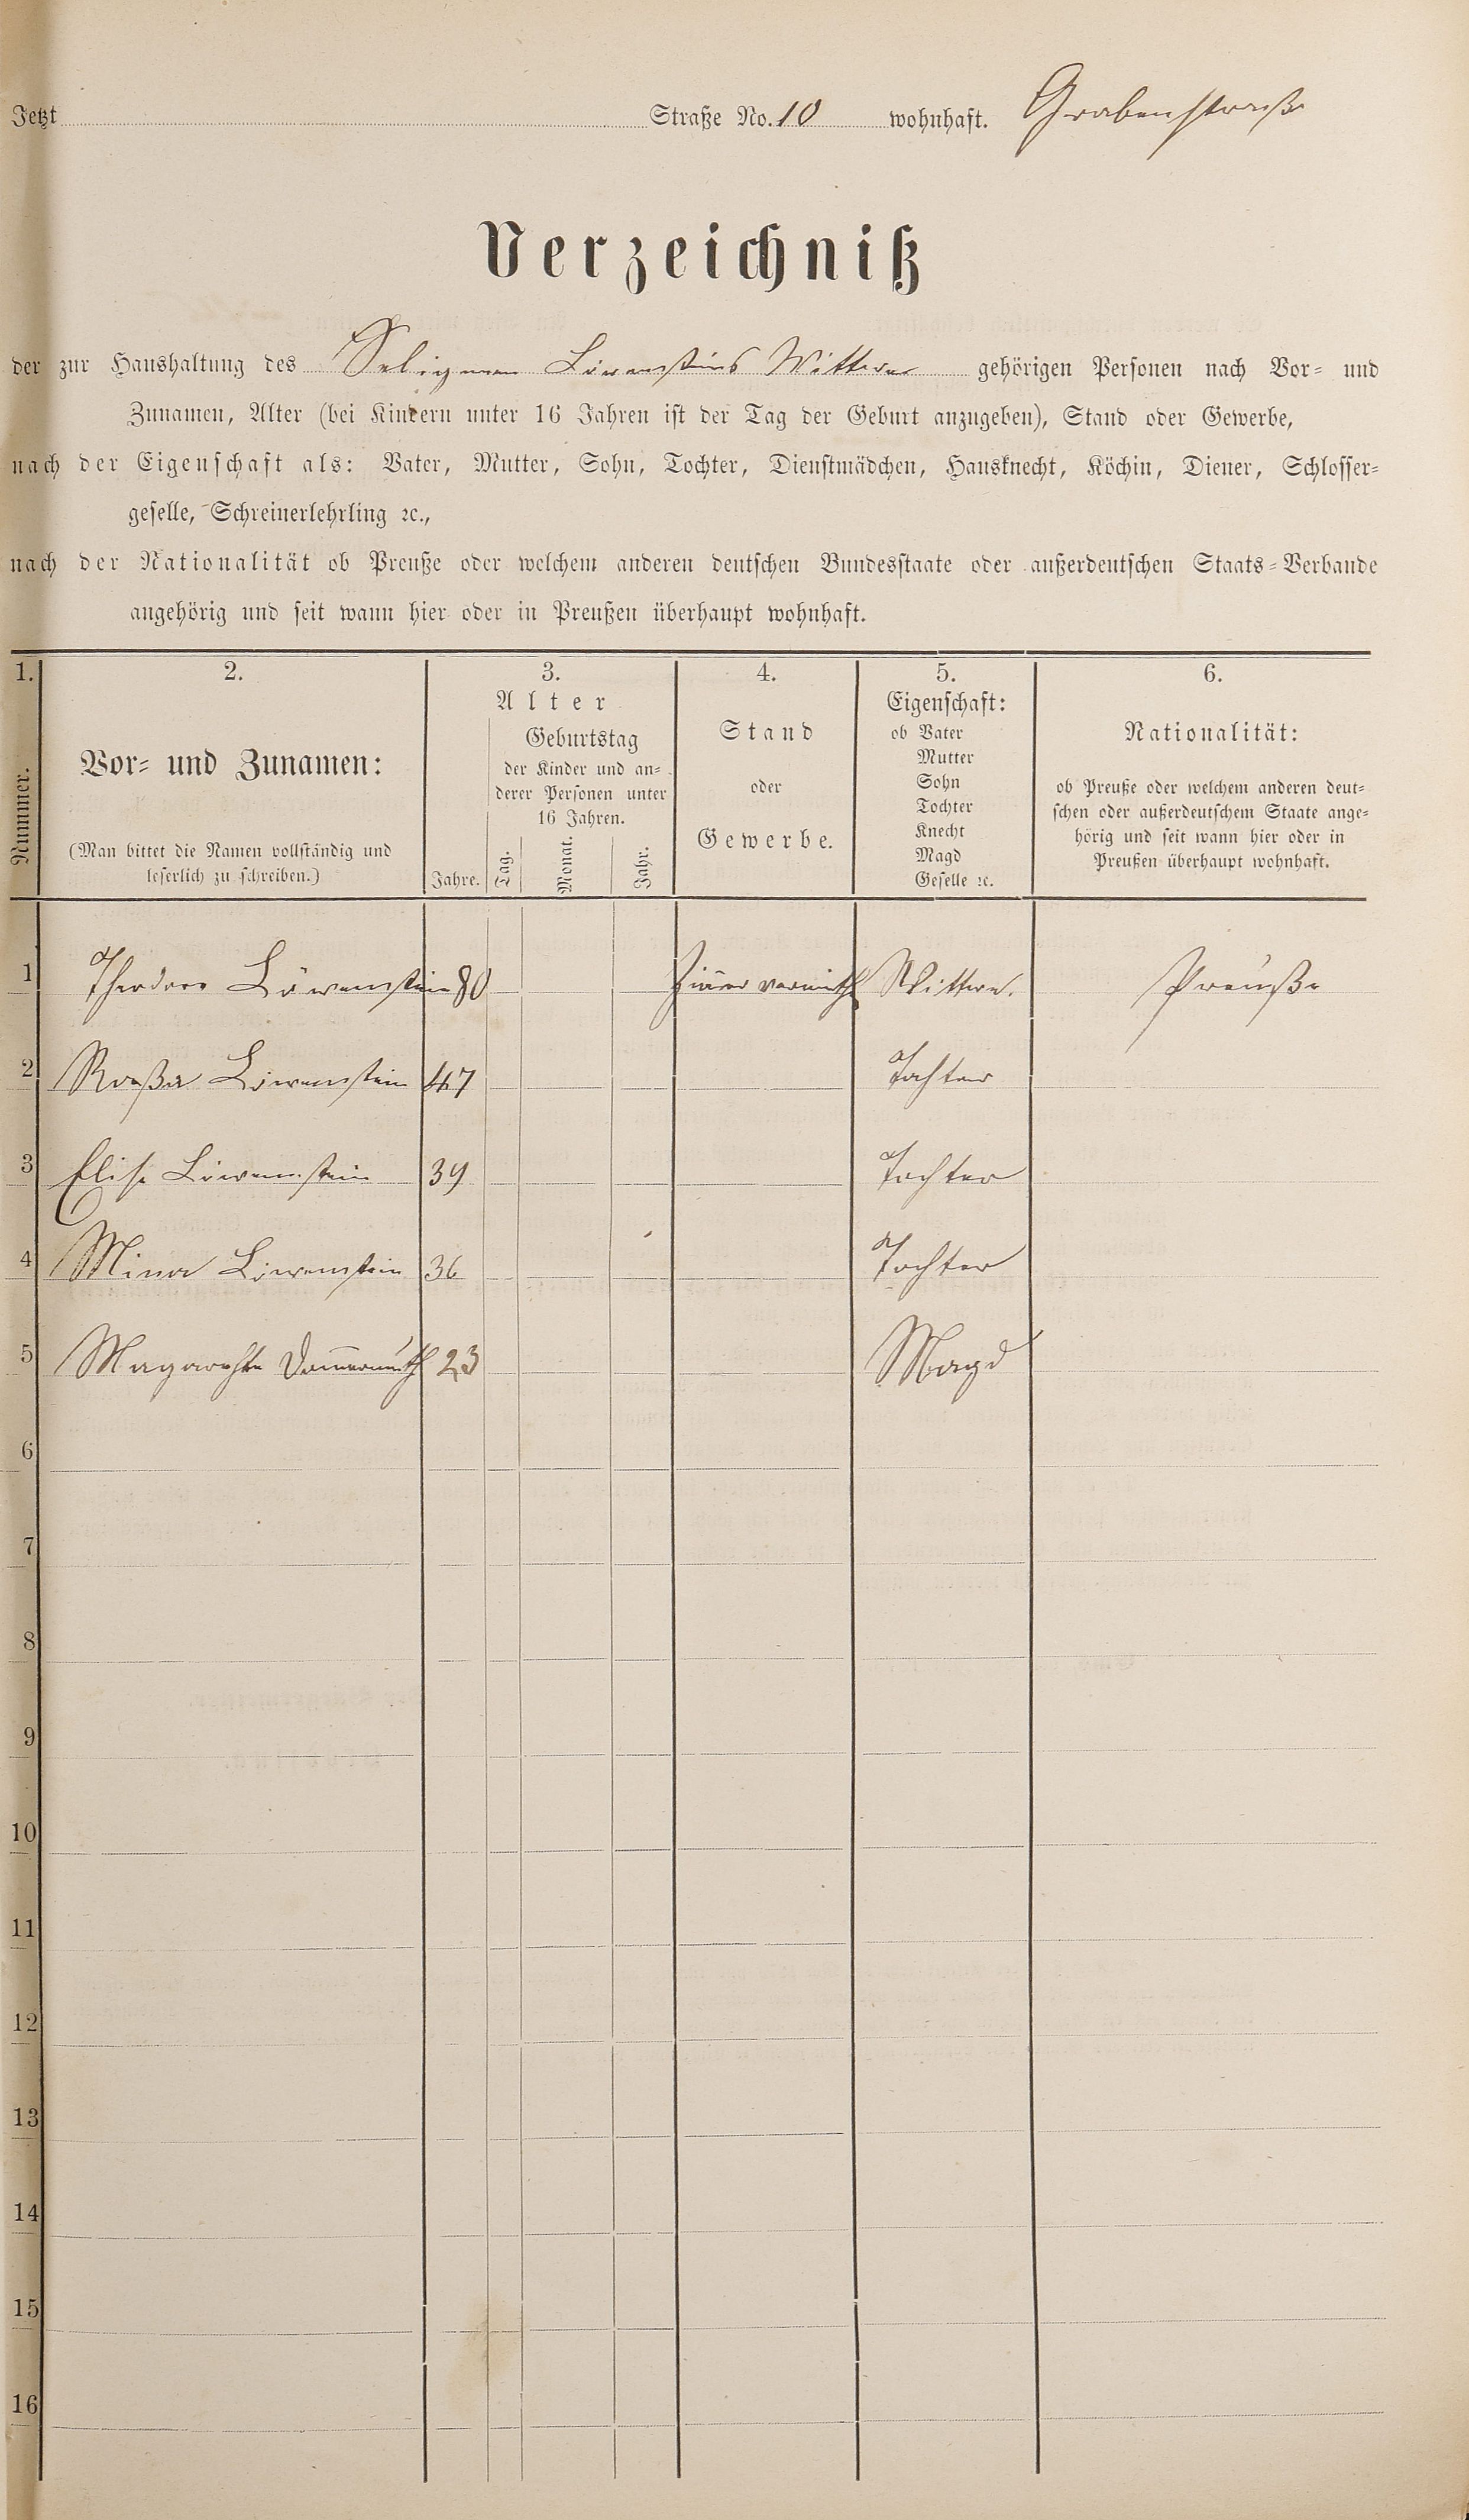 Jetzt Straße No. 10 wohnhaft. Grabenstraße
Verzeichniß
der zur Haushaltung des Seligman Löwensteins Wittwe gehörigen Personen nach Vor- und
Zunamen, Alter (bei Kindern unter 16 Jahren ist der Tag der Geburt anzugeben), Stand oder Gewerbe,
nach der Eigenschaft als: Vater, Mutter, Sohn, Tochter, Dienstmädchen, Hausknecht, Köchin, Diener, Schlosser-
geselle, Schreinerlehrling ꝛc.,
nach der Nationalität ob Preuße oder welchem anderen deutschen Bundesstaate oder außerdeutschen Staats-Verbande
angehörig und seit wann hier oder in Preußen überhaupt wohnhaft.
1.
Nummer.
2.
Vor- und Zunamen:
(Man bittet die Namen vollständig und
leserlich zu schreiben.)
3.
Alter
Geburtstag
der Kinder und an-
derer Personen unter
16 Jahren.
Jahre. Tag. Monat. Jahr.
4.
Stand
oder
Gewerbe.
5.
Eigenschaft:
ob Vater
Mutter
Sohn
Tochter
Knecht
Magd
Geselle ꝛc.
6.
Nationalität:
ob Preuße oder welchem anderen deut-
schen oder außerdeutschem Staate ange-
hörig und seit wann hier oder in
Preußen überhaupt wohnhaft.
1 Theodore Löwenstein 80 Zim̄er vermieth Wittwe. Preuße
2 Roßa Löwenstein 47 Tochter
3 Elise Löwenstein 39 Tochter
4 Mina Löwenstein 36 Tochter
5 Magarethe 23 Magd
6
7
8
9
10
11
12
13
14
15
16